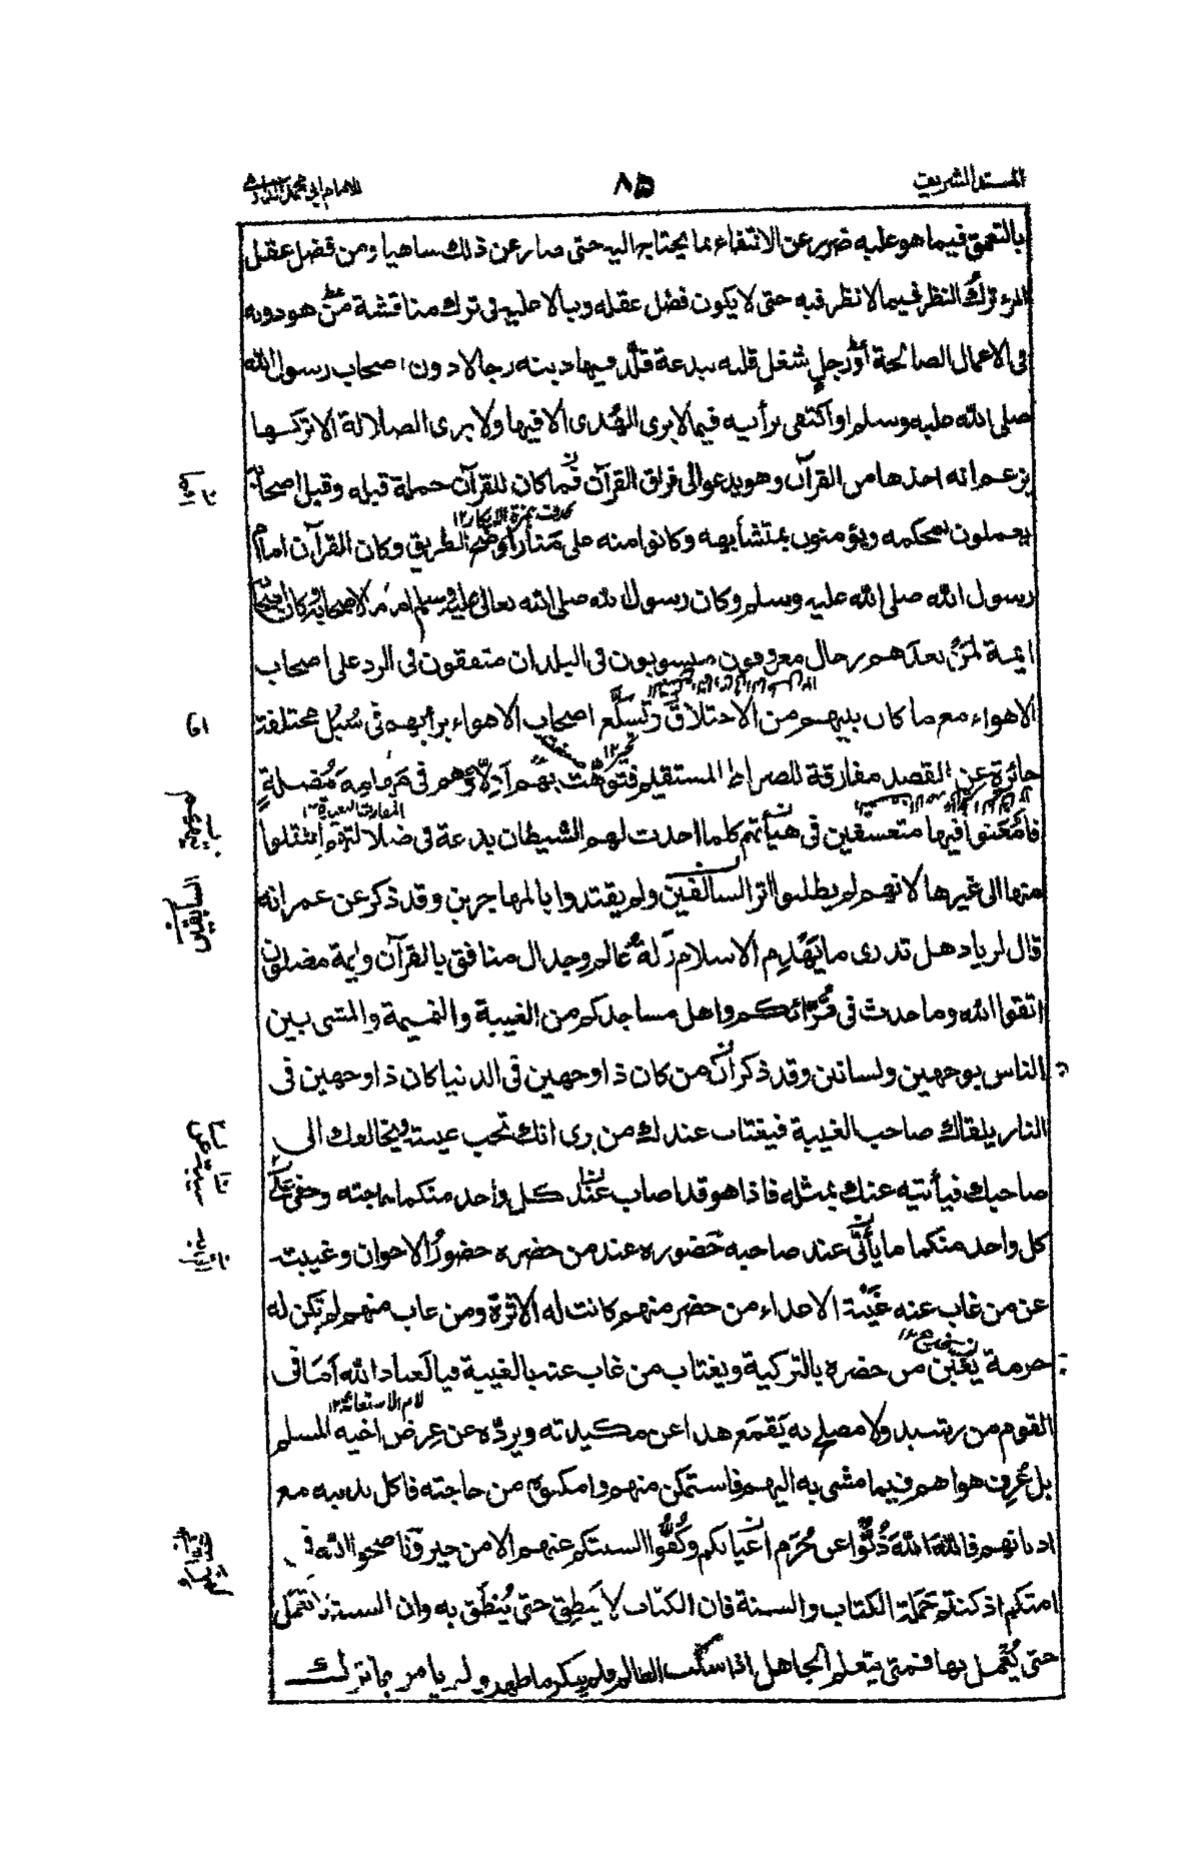 المسند الشريف
٨٥
للامام ابي محمد الدارمي
بالتعمق فيما هو عليه ضرير عن الانتفاع بما يحتاج اليه حتى صار عن ذلك ساهيا ومن فضل عقل
المرء ترك النظر فيما لا نظر فيه حتى لا يكون فضل عقله وبالا عليه فى ترك مناقشة من هو دونه
فى الاعمال الصالحة أو رجل شغل قلبه ببدعة قلد فيها دينه رجالا دون اصحاب رسول الله
صلى الله عليه وسلم او اكتفى برأيه فيما لا يرى الهدى الا فيها ولا يرى الضلالة الا تركها
يزعم انه اخذها من القرآن وهو يدعو الى فراق القرآن فما كان للقرآن حملة قبله وقبل اصحابه
يعملون بمحكمه ويؤمنون بمتشابهه وكانوا منه على منار اوضح الطريق وكان القرآن امام
رسول الله صلى الله عليه وسلم وكان رسول الله صلى الله تعالى عليه وسلم اماما لاصحابه وكان اصحابه
ائمة لمن بعدهم رجال معروفون منسوبون فى البلدان متفقون فى الرد على اصحاب
الاهواء مع ما كان بينهم من الاختلاف وتسكع اصحاب الاهواء برأيهم فى سبل مختلفة
جائرة عن القصد مفارقة للصراط المستقيم فتوهت بهم ادلاؤهم فى مهامه مضلة
فامعنوا فيها متعسفين فى هيأتهم كلما احدث لهم الشيطان بدعة فى ضلالتهم انتقلوا
منها الى غيرها لانهم لم يطلبوا اثر السالفين ولم يقتدوا بالمهاجرين وقد ذكر عن عمر انه
قال لزياد هل تدرى ما يهدم الاسلام زلة عالم وجدال منافق بالقرآن وائمة مضلون
اتقوا الله وما حدث فى قرائكم واهل مساجدكم من الغيبة والنميمة والمشى بين
الناس بوجهين ولسانين وقد ذكر ان من كان ذا وجهين فى الدنيا كان ذا وجهين فى
النار يلقاك صاحب الغيبة فيغتاب عندك من يرى انك تحب غيبته ويخالفك الى
صاحبك فيأتيه عنك بمثله فاذا هو قد اصاب عند كل واحد منكما حاجته وخفى على
كل واحد منكما ما يأتى عند صاحبه حضوره عند من حضره حضور الاخوان وغيبته
عن من غاب عنه غيبة الاعداء من حضر منهم كانت له الاثرة ومن غاب منهم لم تكن له
حرمة يفتن من حضره بالتزكية ويغتاب من غاب عنه بالغيبة فيا لعباد الله أما فى
القوم من رشيد ولا مصلح به يقمع هذا عن مكيدته ويرده عن عرض اخيه المسلم
بل عرف هواهم فيما مشى به اليهم فاستمكن منهم وامكنوه من حاجته فاكل بدينه مع
اديانهم فالله الله ذبوا عن حرم اعيانكم وكفوا السنتكم عنهم الا من خير وناصحوا الله فى
امتكم اذ كنتم حملة الكتاب والسنة فان الكتاب لا ينطق حتى ينطق به وان السنة لا تعمل
حتى يعمل بها فمتى يتعلم الجاهل اذا سكت العالم فلم ينكر ما ظهر ولم يأمر بما ترك